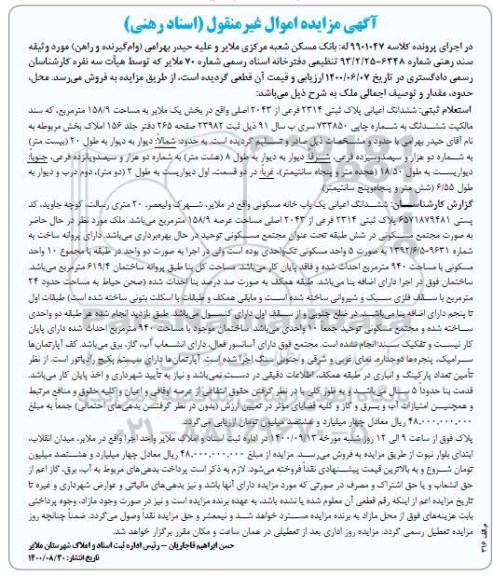 آگهی مزایده اموال غیرمنقول (اسناد رهنی)
در اجرای پرونده کلاسه ۹۹۰۱۰۴۷ له: بانک مسکن شعبه مرکزی ملایر و علیه حیدر بهرامی (وام‌گیرنده و راهن) مورد وثیقه
سند رهنی شماره ۶۳۴۸-۹۳/۲/۲۵ تنظیمی دفترخانه اسناد رسمی شماره ۷۰ ملایر که توسط هیأت سه نفره کارشناسان
رسمی دادگستری در تاریخ ۱۴۰۰/۰۶/۰۷ ارزیابی و قیمت آن قطعی گردیده است، از طریق مزایده به فروش می‌رسد. محل،
حدود، مقدار و توصیف اجمالی ملک به شرح ذیل می‌باشد:
استعلام ثبتی: ششدانگ اعیانی پلاک ثبتی ۲۳۱۴ فرعی از ۲۰۴۳ اصلی واقع در بخش یک ملایر به مساحت ۱۵۸/۹ مترمربع، که سند
مالکیت ششدانگ به شماره چاپی ۷۳۳۸۵۰ سری ب سال ۹۱ ذیل ثبت ۲۳۹۸۲ صفحه ۲۶۵ دفتر جلد ۱۵۶ املاک بخش مربوطه به
نام آقای حیدر بهرامی با حدود و مشخصات ذیل صادر و تسلیم گردیده است. به حدود: شمالاً: دیوار به دیوار به طول ۲۰ (بیست متر)
به شماره دو هزار و سیصدوسیزده فرعی، شرقاً دیوار به دیوار به طول ۸ (هشت متر) به شماره دو هزار و سیصدوپانزده فرعی، جنوباً:
دیواریست به طول ۱۸/۵۰ (هجده متر و پنجاه سانتیمتر)، غرباً: در دو قسمت، اول دیواریست به طول ۲ (دو) متر، دوم درب و دیوار به
طول ۶/۵۵ (شش متر و پنجاه‌وپنج سانتیمتر)
گزارش کارشناسان: ششدانگ اعیانی یک باب خانه مسکونی واقع در ملایر، شهرک ولیعصر، ۲۰ متری رسالت، کوچه جاوید، کد
پستی ۶۵۷۱۸۷۹۴۸۱ پلاک ثبتی ۲۳۱۴ فرعی از ۲۰۴۳ اصلی مساحت عرصه ۱۵۸/۹ مترمربع می‌باشد. ملک مورد نظر در حال حاضر
به صورت مجتمع مسکونی در شش طبقه تحت عنوان مجتمع مسکونی توحید در حال بهره‌برداری می‌باشد. دارای پروانه ساخت به
شماره ۹۶۳۱-۱۳۹۲/۶/۵ به صورت ۵ واحد مسکونی تک‌واحدی بوده است ولی در اجرا به صورت دو واحد در طبقه با مجموع ۱۰ واحد
مسکونی با مساحت ۹۴۰ مترمربع احداث شده و فاقد پایان کار می‌باشد. مساحت کل بنا طبق پروانه ساختمان ۶۱۹/۴ مترمربع می‌باشد.
ساختمان فوق در اجرا دارای اضافه بنا می‌باشد. طبقه همکف به صورت صد درصد بنا احداث شده (صحن حیاط به مساحت حدود ۲۴
مترمربع با سقف فلزی سبک و شیروانی ساخته شده است) و مابقی همکف و طبقات با اسکلت بتونی ساخته شده است) طبقات اول
تا پنجم دارای اضافه بنا می‌باشد. در ضلع جنوبی و از سقف اول دارای کنسول می‌باشد. طبق بازدید انجام شده هر طبقه دو واحدی
ساخته شده و مجتمع مسکونی توحید جمعاً ۱۰ واحدی می‌باشد. ساختمان موجود با مساحت ۹۴۰ مترمربع احداث شده دارای پایان
کار نیست و تفکیک سند انجام نشده است. مجتمع فوق دارای آسانسور فعال، دارای انشعاب آب، گاز، برق می‌باشد. کف آپارتمان‌ها
سرامیک، پنجره‌ها دوجداره، نمای غربی و شرقی و جنوبی سنگ اجرا شده است. آپارتمان‌ها دارای سیستم پکیج رادیاتور است. از نظر
تأمین تعداد پارکینگ و انباری در طبقه همکف، اطلاعات دقیقی در دست نمی‌باشد و نیاز به تأیید شهرداری و اخذ پایان کار می‌باشد.
قدمت بنا حدوداً ۵ سال می‌باشد و به طور کلی با در نظر گرفتن حقوق انتفاعی از عرصه اوقافی و اعیان و کلیه حقوق و منافع مرتبط
و همچنین امتیازات آب و برق و گاز و کلیه فضاهای مؤثر در تعیین ارزش (بدون در نظر گرفتن بدهی‌های احتمالی) جمعاً به مبلغ
۴۸,۰۰۰,۰۰۰,۰۰۰ ریال معادل چهار میلیارد و هشتصد میلیون تومان ارزیابی می‌گردد.
پلاک فوق از ساعت ۹ الی ۱۲ روز شنبه مورخه ۱۴۰۰/۰۹/۱۳ در اداره ثبت اسناد و املاک ملایر واحد اجرا واقع در ملایر، میدان انقلاب،
ابتدای بلوار نبوت از طریق مزایده به فروش می‌رسد. مزایده از مبلغ ۴۸,۰۰۰,۰۰۰,۰۰۰ ریال معادل چهار میلیارد و هشتصد میلیون
تومان شروع و به بالاترین قیمت پیشنهادی نقداً فروخته می‌شود. لازم به ذکر است پرداخت بدهی‌های مربوط به آب، برق، گاز اعم از
حق انشعاب و یا حق اشتراک و مصرف در صورتی که مورد مزایده دارای آنها باشد و نیز بدهی‌های مالیاتی و عوارض شهرداری و غیره تا
تاریخ مزایده اعم از اینکه رقم قطعی آن معلوم شده یا نشده باشد، به عهده برنده مزایده است و نیز در صورت وجود مازاد، وجوه پرداختی
بابت هزینه‌های فوق از محل مازاد به برنده مزایده مسترد خواهد شد و نیم‌عشر و حق مزایده نقداً وصول می‌گردد. ضمناً چنانچه روز
مزایده تعطیل رسمی گردد، مزایده روز اداری بعد از تعطیلی در همان ساعت و مکان مقرر برگزار خواهد شد.
حسن ابراهیم قاجاریان – رئیس اداره ثبت اسناد و املاک شهرستان ملایر
تاریخ انتشار: ۱۴۰۰/۰۸/۲۰
م.الف ۳۱۶
۰۲۱-۸۸۳۴۹۶۷۰